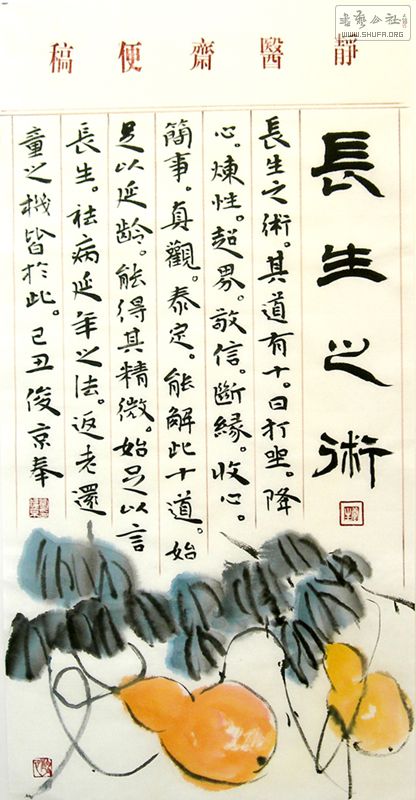 WWW.SHUFA.ORG
靜醫齋便稿
長生之術
長生之術。其道有十。曰打坐。降
心。煉性。超界。敬信。斷緣。收心。
簡事。真觀。泰定。能解此十道。始
足以延齡。能得其精微。始足以言
長生。祛病延年之法。返老還
童之機皆於此。己丑俊京奉